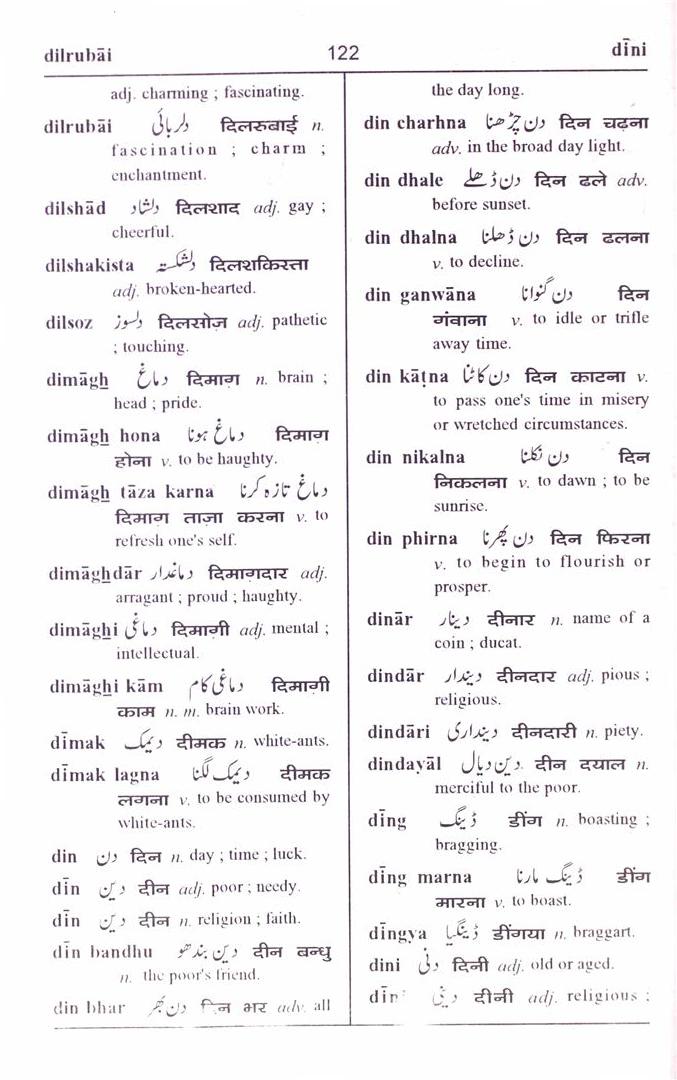 dilrubāi 122 dīni
adj. charming ; fascinating.
dilrubāi دلربائی दिलरुबाई n.
fascination ; charm ;
enchantment.
dilshād دلشاد दिलशाद adj. gay ;
cheerful.
dilshakista دلشکستہ दिलशकिस्ता
adj. broken-hearted.
dilsoz دلسوز दिलसोज़ adj. pathetic
; touching.
dimāgh دماغ दिमाग़ n. brain ;
head ; pride.
dimāgh hona دماغ ہونا दिमाग़
होना v. to be haughty.
dimāgh tāza karna دماغ تازہ کرنا
दिमाग़ ताज़ा करना v. to
refresh one's self.
dimāghdār دماغدار दिमाग़दार adj.
arragant ; proud ; haughty.
dimāghi دماغی दिमाग़ी adj. mental ;
intellectual.
dimāghi kām دماغی کام दिमाग़ी
काम n. m. brain work.
dīmak دیمک दीमक n. white-ants.
dīmak lagna دیمک لگنا दीमक
लगना v. to be consumed by
white-ants.
din دن दिन n. day ; time ; luck.
dīn دین दीन adj. poor ; needy.
dīn دین दीन n. religion ; faith.
dīn bandhu دین بندھو दीन बन्धु
n. the poor's friend.
din bhar دن بھر दिन भर adv. all
the day long.
din charhna دن چڑھنا दिन चढ़ना
adv. in the broad day light.
din dhale دن ڈھلے दिन ढले adv.
before sunset.
din dhalna دن ڈھلنا दिन ढलना
v. to decline.
din ganwāna دن گنوانا दिन
गंवाना v. to idle or trifle
away time.
din kāṭna دن کاٹنا दिन काटना v.
to pass one's time in misery
or wretched circumstances.
din nikalna دن نکلنا दिन
निकलना v. to dawn ; to be
sunrise.
din phirna دن پھرنا दिन फिरना
v. to begin to flourish or
prosper.
dinār دینار दीनार n. name of a
coin ; ducat.
dindār دیندار दीनदार adj. pious ;
religious.
dindāri دینداری दीनदारी n. piety.
dindayāl دین دیال दीन दयाल n.
merciful to the poor.
dīng ڈینگ डींग n. boasting ;
bragging.
dīng marna ڈینگ مارنا डींग
मारना v. to boast.
dīngya ڈینگیا डींगया n. braggart.
dini دنی दिनी adj. old or aged.
دینی दीनी adj. religious ;